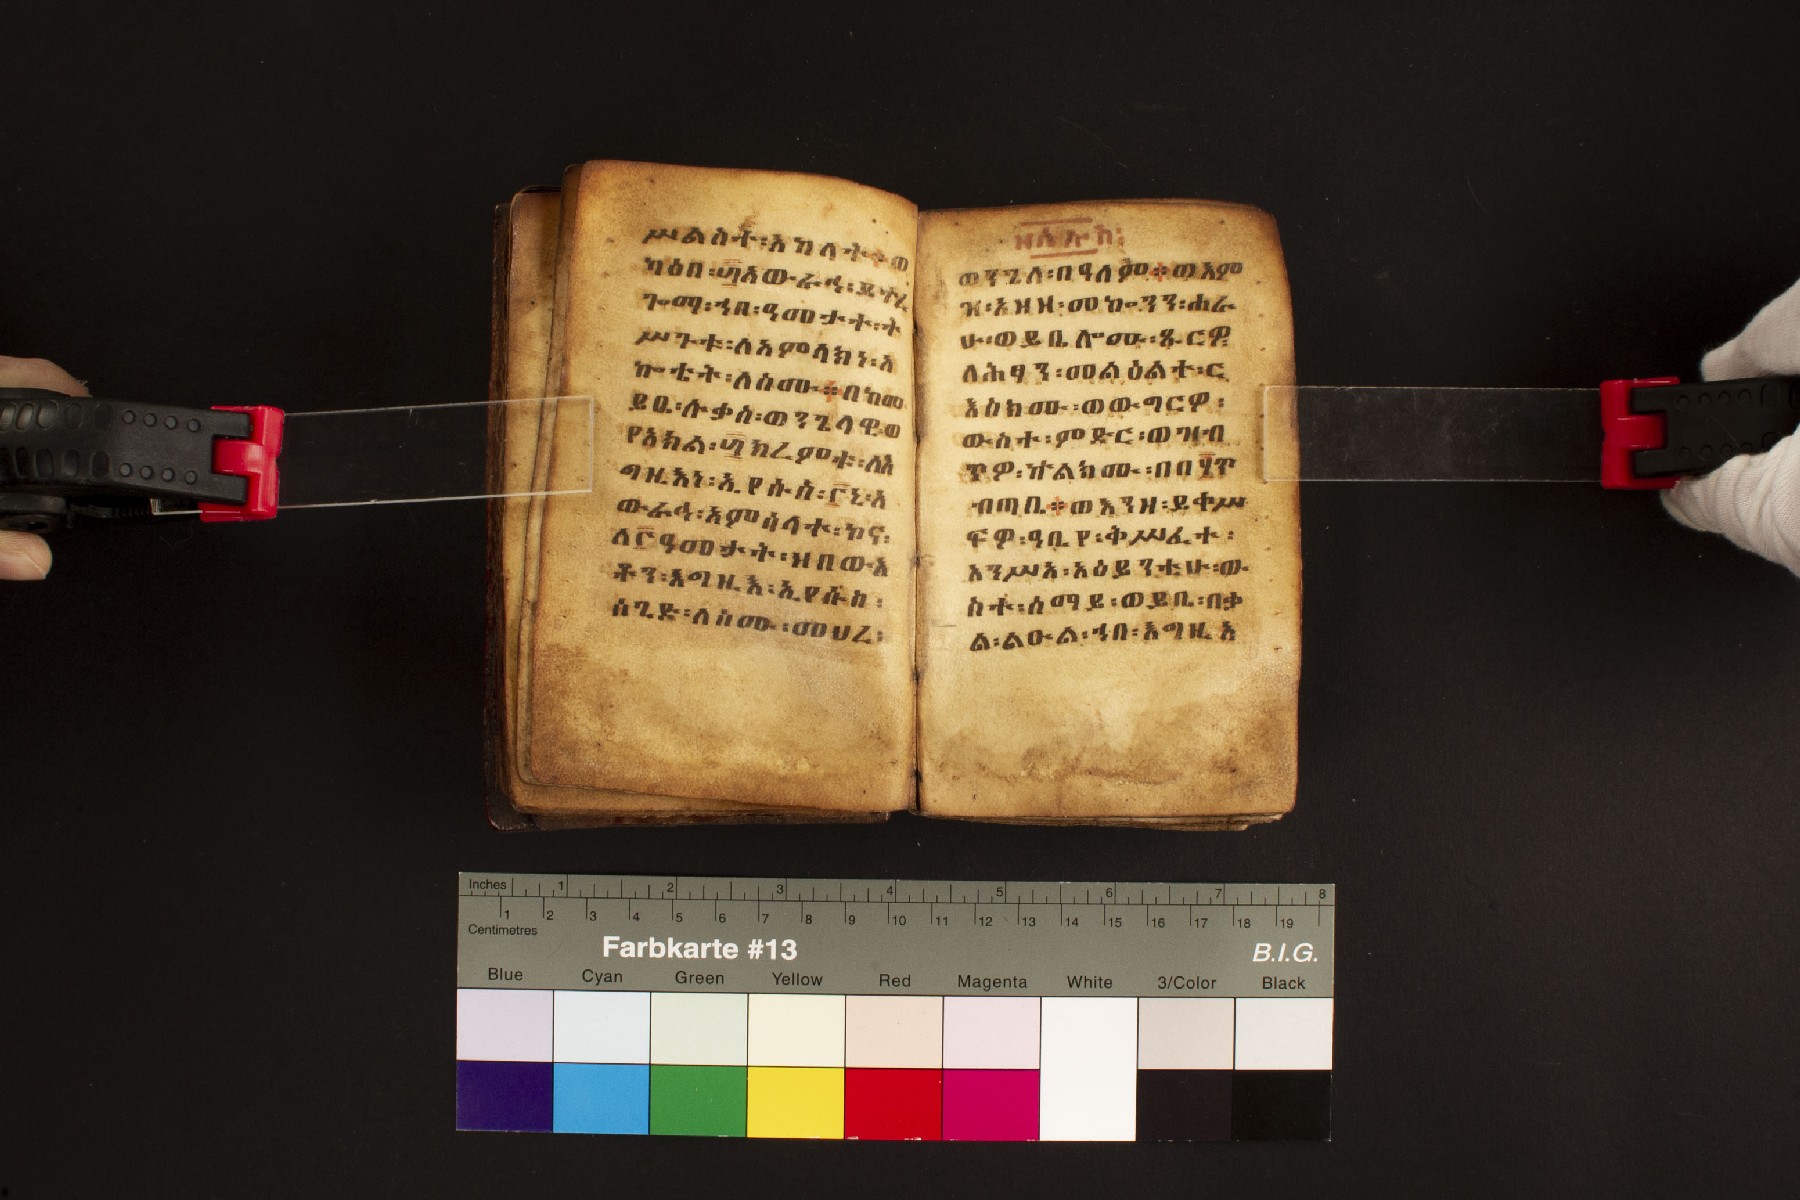 ሥልስተ፡አክላት፡፡ወ
ካዕበ፡፷አውራኁ፡ይተረ
ጐማ፡ኀበ፡ዓመታተ፡ት
ሥጉቱ፡ለአምላክነ፡አ
ኰቴት፡ለስሙ፡፡በከመ
ይቤ፡ሉቃስ፡ወንጌላዊ፡ወ
የአክል፡፷ክረምቱ፡ለእ
ግዚእነ፡ኢየሱስ፡
ውራኁ፡አምሰላተ፡ኮና፡
ዓመታት፡ዘበውእ
ቶን፡እግዚእ፡ኢየሱስ፡
ሰጊድ፡ለስሙ፡መሀረ፡
ዘሰኑክ፡
ወንጌለ፡በዓለም፡፡ወእም
ዝ፡አዘዘ፡መኰንን፡ሐራ
ሁ፡ወይቤሎሙ፡ጹርዎ
ለሕፃን፡መልዕልተ፡ር
እስክሙ፡ወውግርዎ፡
ውስተ፡ምድር፡ወዝብ
ጥዎ፡ኵልክሙ፡በበ፻ጥ
ብጣቤ፡፡ወእንዘ፡ይቀሥ
ፍዎ፡ዓቢየ፡ቅሥፈተ፡
አንሥአ፡አዕይንቲሁ፡ው
ስተ፡ሰማይ፡ወይቤ፡በቃ
ል፡ልዑል፡ኀበ፡እግዚአ
Inches 1 2 3 4 5 6 7 8
1 2 3 4 5 6 7 8 9 10 11 12 13 14 15 16 17 18 19
Centimetres
Farbkarte #13
B.I.G.
Blue Cyan Green Yellow Red Magenta White 3/Color Black